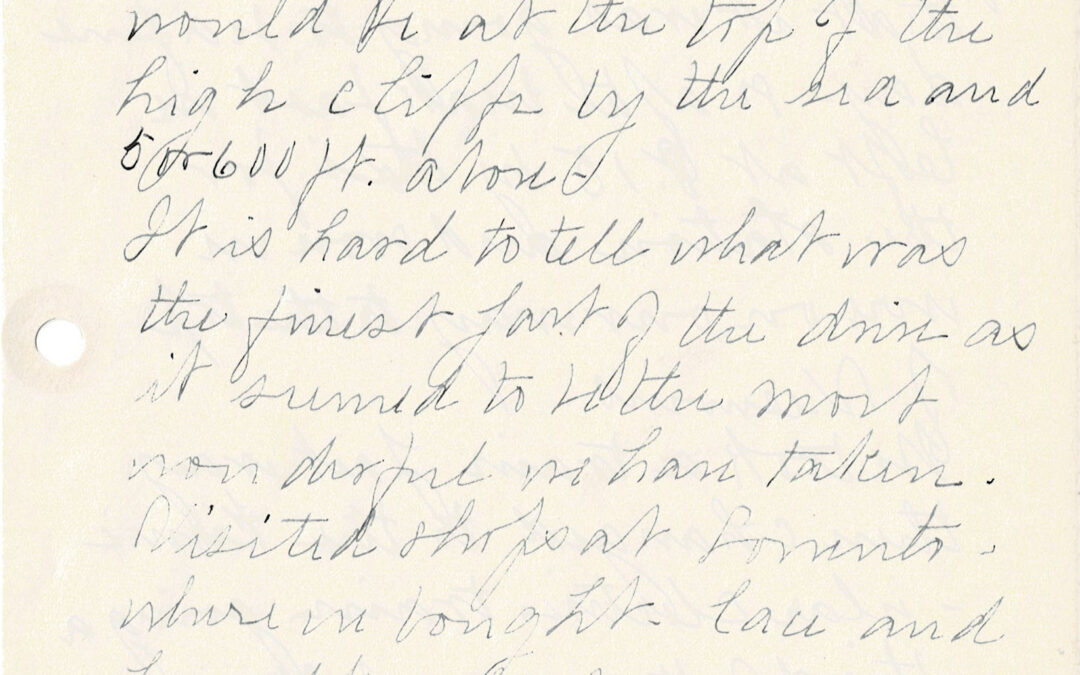 would be at the top of the
high cliffs by the sea and
5 or 600 ft. above -
It is hard to tell what was
the finest part of the drive as
it seemed to be the most
wonderful we have taken.
Visited shops at Sorrento -
where we bought lace and